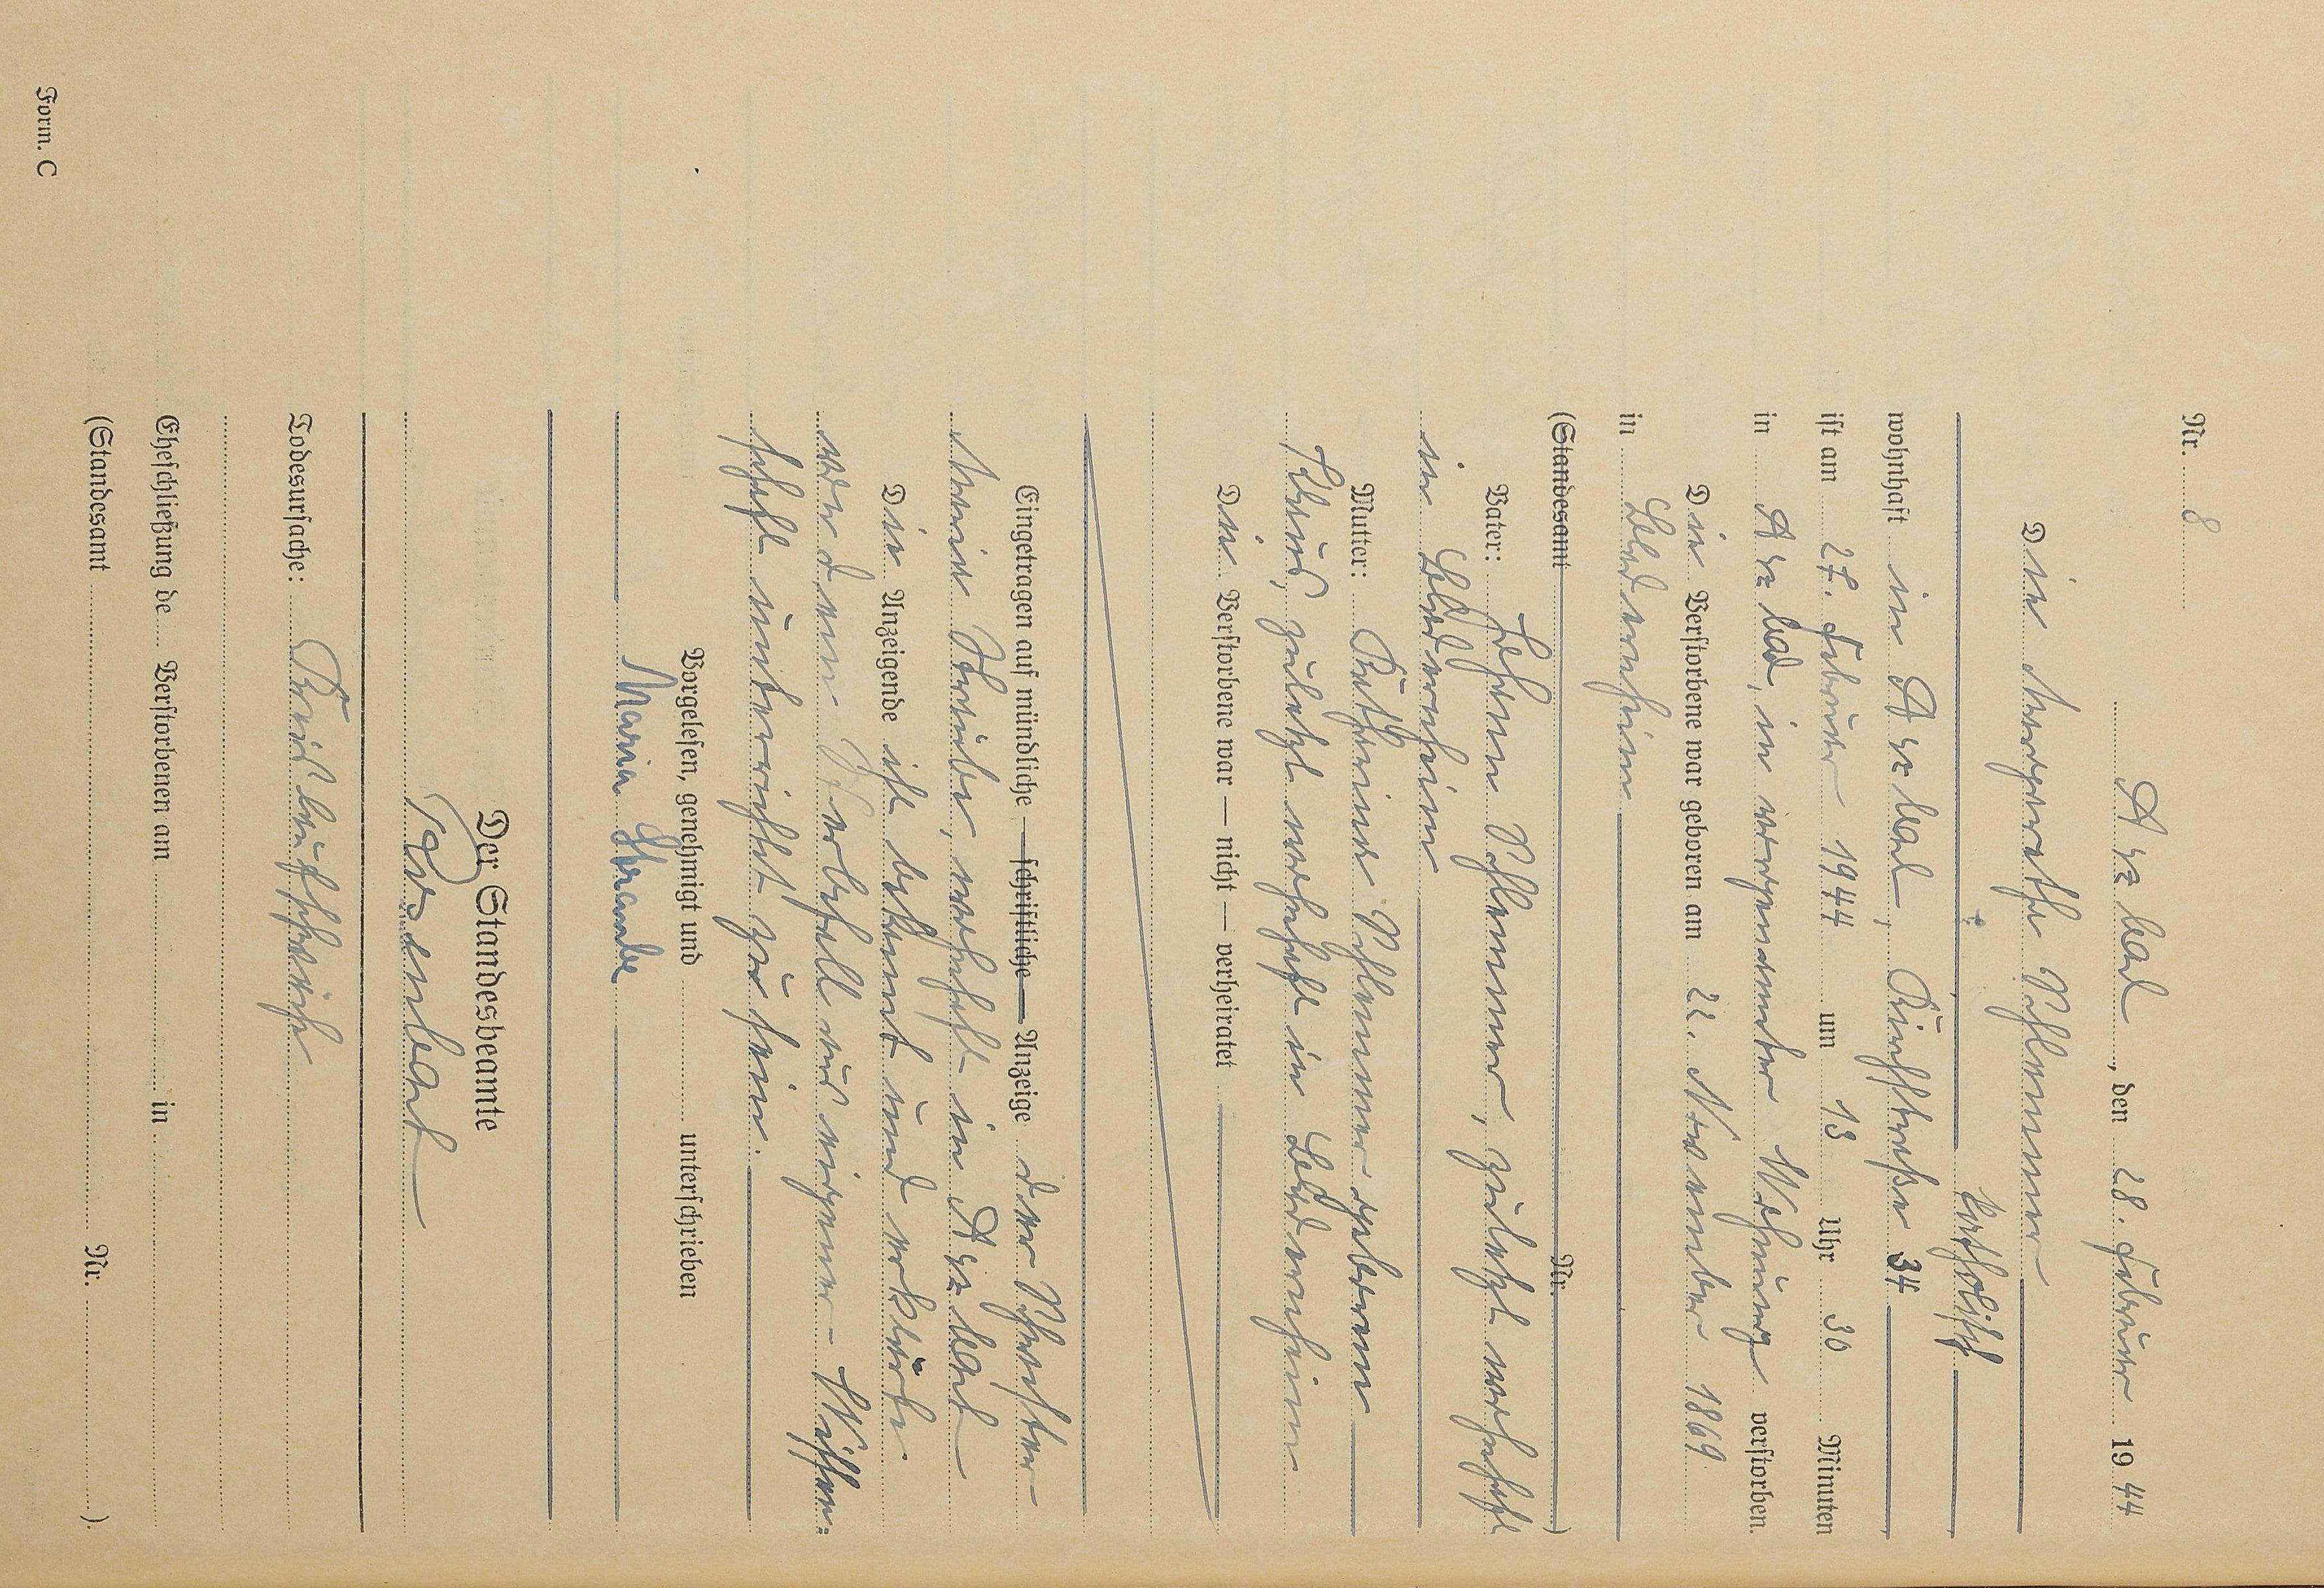 Nr. 8
Arzbach, den 28. Februar 1944
Die Margarethe Schlemmer
katholisch
wohnhaft in Arzbach, Kirchstraße 34
ist am 27. Februar 1944 um 13 Uhr 30 Minuten
in Arzbach, in vorgenannter Wohnung verstorben.
Die Verstorbene war geboren am 22. November 1869
in
(Standesamt Nr. )
Vater: Johann Schlemmer, zuletzt wohnhaft
in
Mutter: Katharina Schlemmer geborene
zuletzt wohnhaft in
Die Verstorbene war — nicht — verheiratet
Eingetragen auf mündliche — schriftliche — Anzeige der Schwester
Maria Straube, wohnhaft in Arzbach
Die Anzeigende ist bekannt und erklärte
von dem Sterbefall aus eigener Wissen-
schaft unterrichtet zu sein.
Vorgelesen, genehmigt und unterschrieben
Maria Straube
Der Standesbeamte
Todesursache:
Eheschließung de Verstorbenen am in
(Standesamt Nr. ).
Form. C